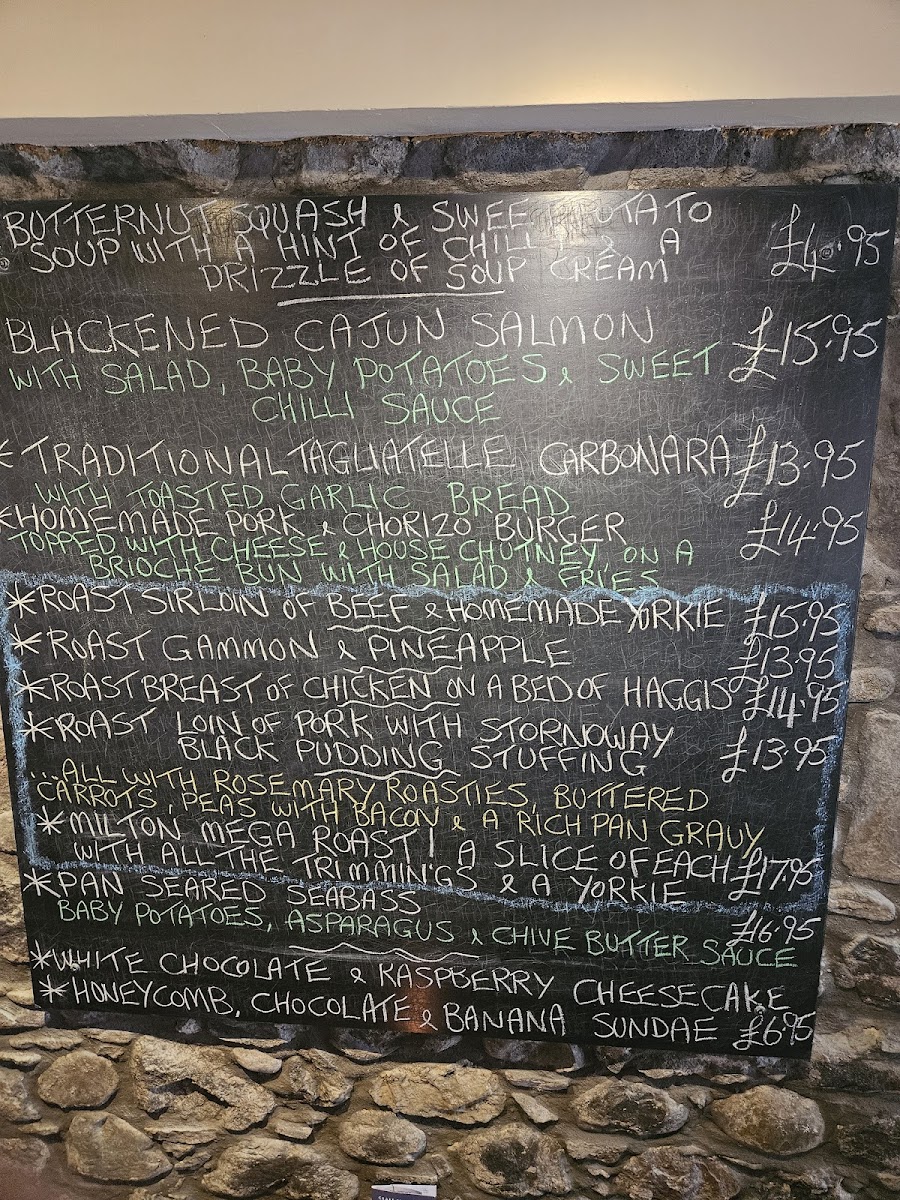 BUTTERNUT SQUASH & SWEET POTATO
SOUP WITH A HINT OF CHILLI & A
DRIZZLE OF SOUP CREAM
£4.95
BLACKENED CAJUN SALMON £15.95
WITH SALAD, BABY POTATOES & SWEET
CHILLI SAUCE
* TRADITIONAL TAGLIATELLE CARBONARA £13.95
WITH TOASTED GARLIC BREAD
* HOMEMADE PORK & CHORIZO BURGER £14.95
TOPPED WITH CHEESE & HOUSE CHUTNEY, ON A
BRIOCHE BUN WITH SALAD & FRIES
* ROAST SIRLOIN OF BEEF & HOMEMADE YORKIE £15.95
* ROAST GAMMON & PINEAPPLE £13.95
* ROAST BREAST OF CHICKEN ON A BED OF HAGGIS £14.95
* ROAST LOIN OF PORK WITH STORNOWAY
BLACK PUDDING STUFFING £13.95
...ALL WITH ROSEMARY ROASTIES, BUTTERED
CARROTS, PEAS WITH BACON & A RICH PAN GRAVY
* MILTON MEGA ROAST! A SLICE OF EACH
WITH ALL THE TRIMMIN'GS & A YORKIE £17.95
* PAN SEARED SEABASS £16.95
BABY POTATOES, ASPARAGUS & CHIVE BUTTER SAUCE
* WHITE CHOCOLATE & RASPBERRY CHEESECAKE
* HONEYCOMB, CHOCOLATE & BANANA SUNDAE £6.95